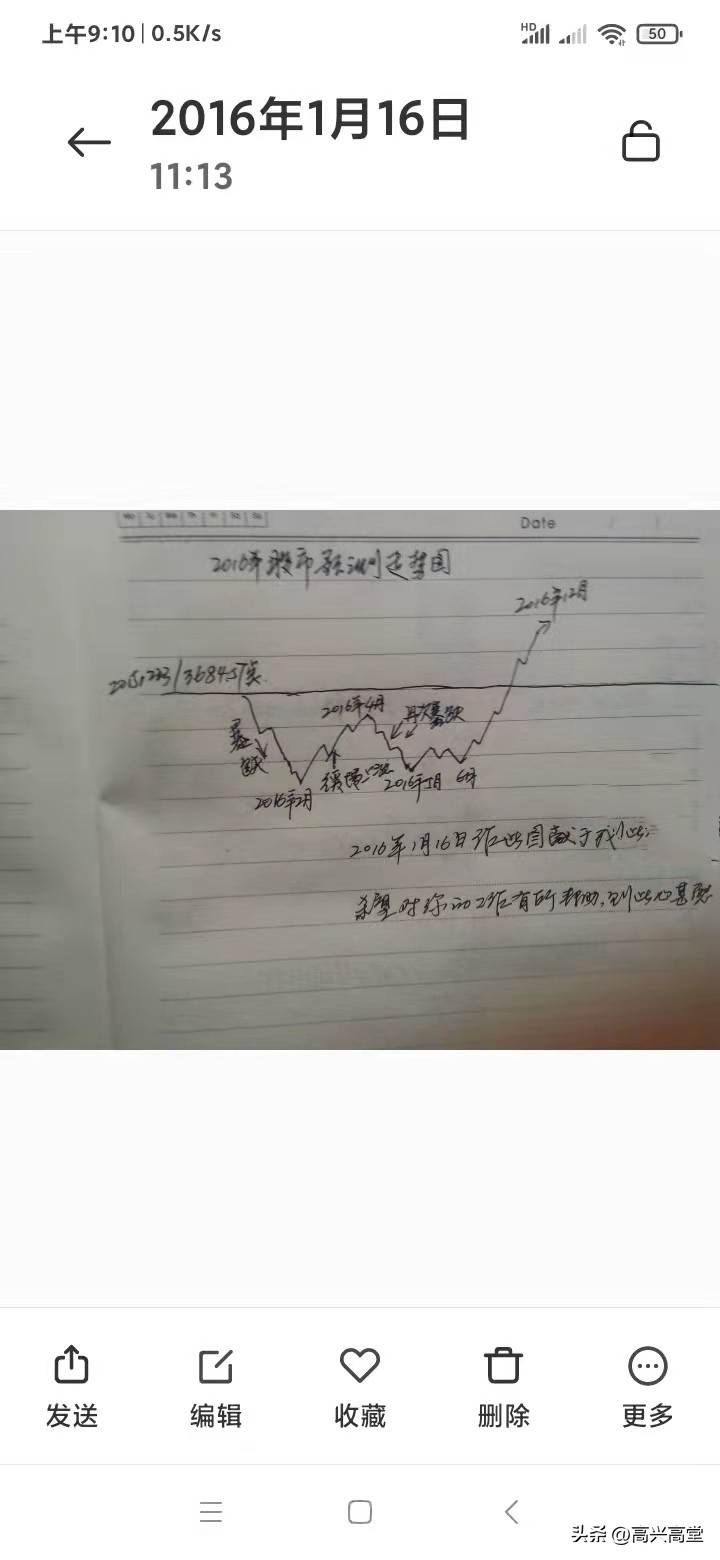 上午9:10 | 0.5K/s
HD
50
2016年1月16日
11:13
Mo Tu We Th Fr Sa Su
Date
2016年股市预测走势图
2016年12月
3684点
2016年4月
再次暴跌
暴跌
2016年2月
2016年5月
6月
2016年1月16日作此图献于我
希望对你的工作有所帮助,到此心甚慰
发送
编辑
收藏
删除
更多
头条 @高兴高堂